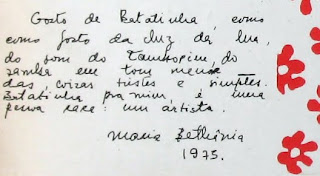 Gosto de Batatinha, como
como gosto da luz da lua,
do som do Tamborim, do
samba em tom menor
das coizas tristes e simples.
Batatinha pra mim, é uma
pessoa rara: um artista.
Maria Bethânia
1975.